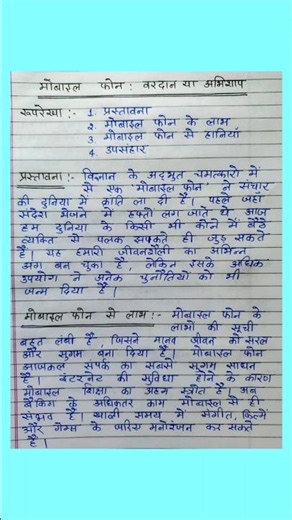 मोबाइल फोन : वरदान या अभिशाप
रूपरेखा :- 1. प्रस्तावना
2. मोबाइल फोन के लाभ
3. मोबाइल फोन से हानियाँ
4. उपसंहार
प्रस्तावना :- विज्ञान के अद्भुत चमत्कारो में
से एक 'मोबाइल फोन' ने संचार
की दुनिया में क्रांति ला दी है। पहले जहाँ
संदेश भेजने में हफ्तों लग जाते थे आज
हम दुनिया के किसी भी कोने में बैठे
व्यक्ति से पलक झपकते ही जुड़ सकते
हैं। यह हमारी जीवनशैली का अभिन्न
अंग बन चुका है, लेकिन इसके अधिक
उपयोग ने अनेक चुनौतियों को भी
जन्म दिया है।
मोबाइल फोन से लाभ :- मोबाइल फोन के
लाभों की सूची
बहुत लंबी है, जिसने मानव जीवन को सरल
और सुगम बना दिया है। मोबाइल फोन
आजकल संपर्क का सबसे सुगम साधन
है। इंटरनेट की सुविधा होने के कारण
मोबाइल शिक्षा का अहम स्त्रोत है। अब
बैंकिंग के अधिकतर काम मोबाइल से ही
संभव है। खाली समय में संगीत, फिल्में
और गेम्स के जरिए मनोरंजन कर सकते
हैं।